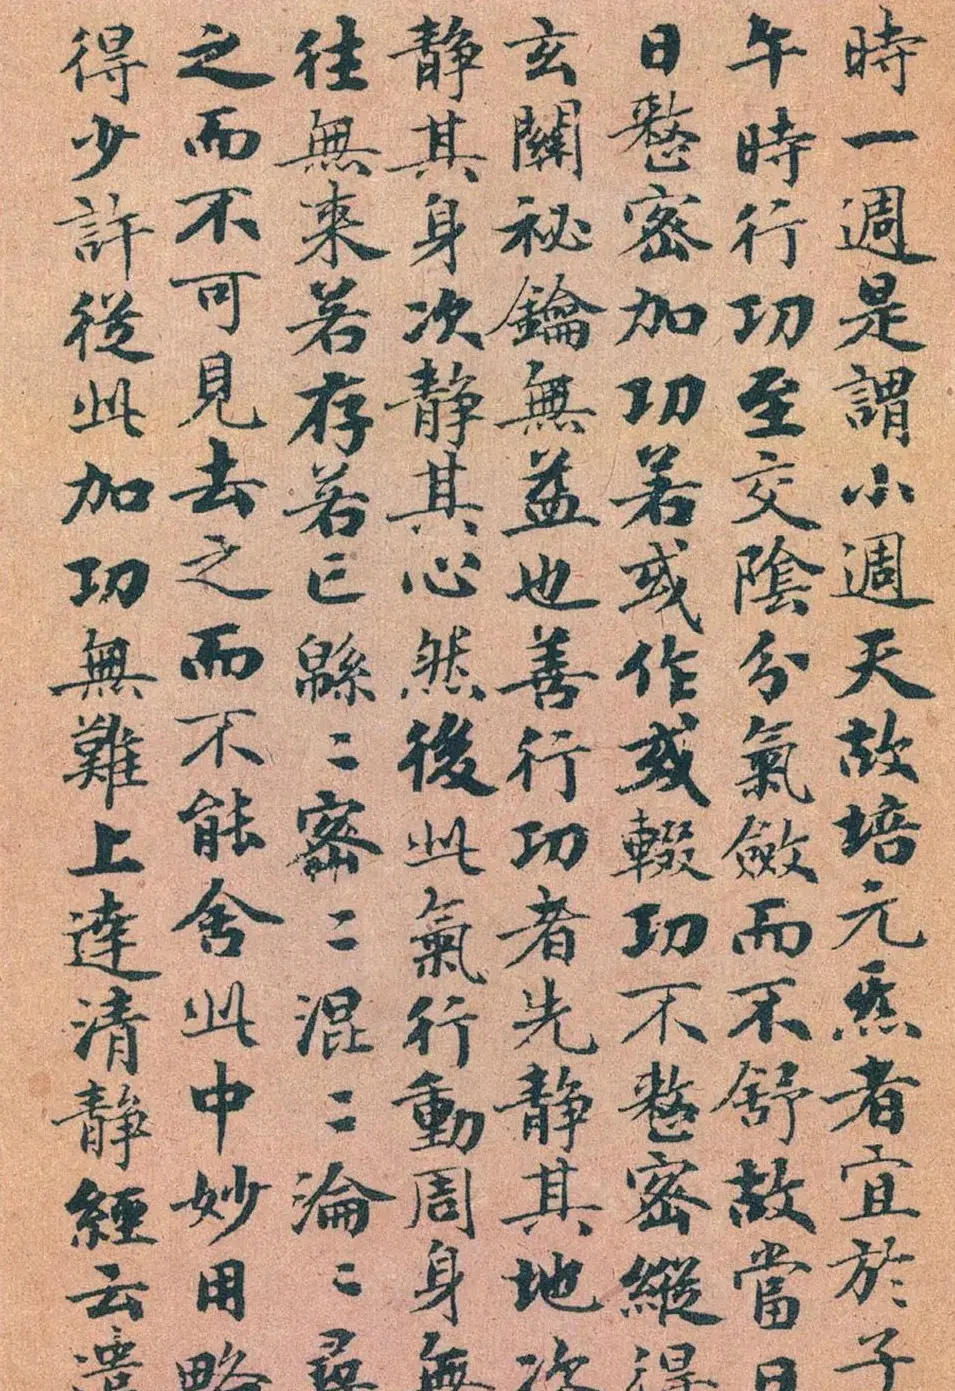 時一週是謂小週天故培元炁者宜於子
午時行功至交陰分氣斂而不舒故當日
日愁密加功若或作或輟功不愁密縱得
玄關祕鑰無益也善行功者先靜其地次
靜其身次靜其心然後此氣行動周身無
往無来若存若亡綿〻密〻混〻淪〻尋
之而不可見去之而不能舍此中妙用略
得少許從此加功無難上達清靜經云